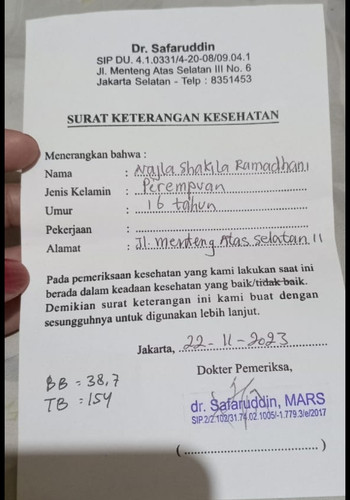 Dr. Safaruddin
SIP DU. 4.1.0331/4-20-08/09.04.1
Jl. Menteng Atas Selatan III No. 6
Jakarta Selatan - Telp : 8351453
SURAT KETERANGAN KESEHATAN
Menerangkan bahwa :
Nama : Najla Shakila Ramadhani
Jenis Kelamin : Perempuan
Umur : 16 tahun
Pekerjaan :
Alamat : Jl. menteng Atas Selatan II
Pada pemeriksaan kesehatan yang kami lakukan saat ini
berada dalam keadaan kesehatan yang baik/tidak baik.
Demikian surat keterangan ini kami buat dengan
sesungguhnya untuk digunakan lebih lanjut.
Jakarta, 22-11-2023
Dokter Pemeriksa,
BB = 38,7
TB = 154
dr. Safaruddin, MARS
SIP.2/2.102/31.74.02.1005/-1.779.3/e/2017
(........................................)